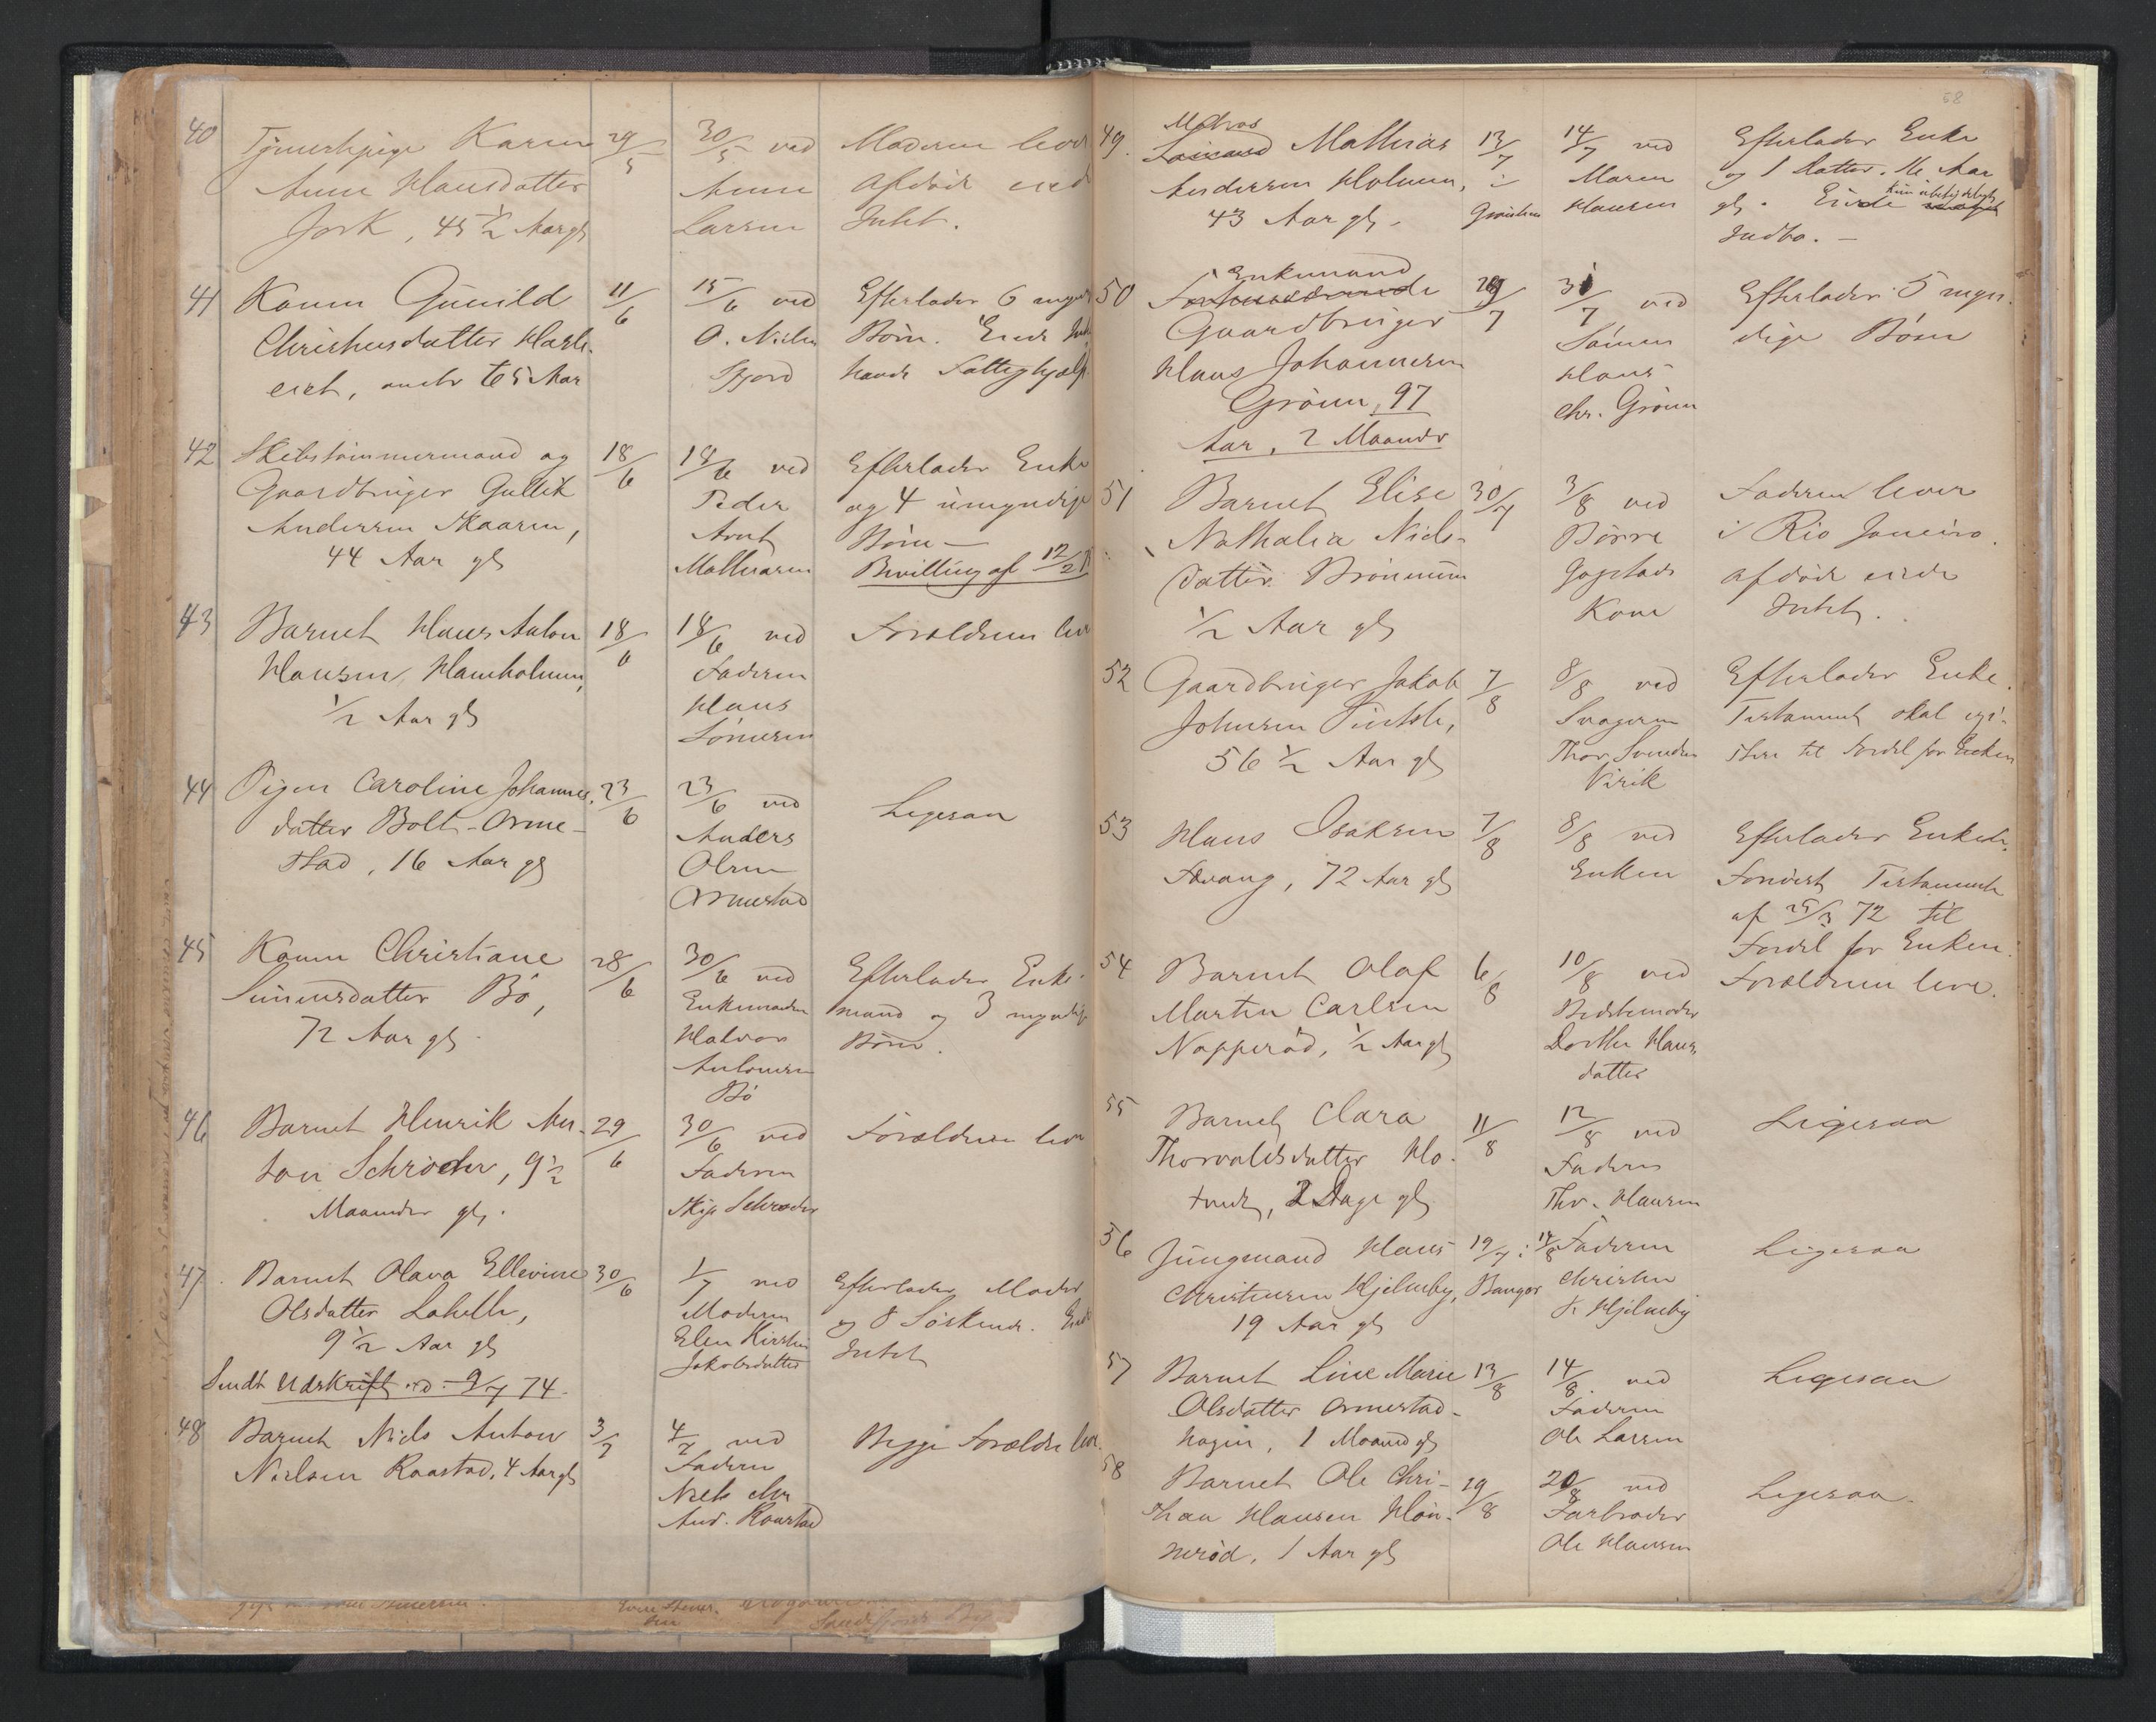 40 Tjenestepige Karen 29/5 30/5 ved Moderen lever
Anne Hansdatter Anne Afdøde eied
Jork, 45 1/2 Aar gl Larsen Intet.
41 Konen Gunild 11/6 15/6 ved Efterlader 6 myndi
Christensdatter Hasle- O. Nielsen Børn. Eiede Int
eiet, under 65 Aar Fjord havde Fattighjælp
42 Skibstømmermand og 18/6 18/6 ved Efterlader Enke
Gaardbruger Gullik Peder og 4 umyndige
Andersen Skaaren, Arnt Børn —
44 Aar gl Mathiasen Bevilling af 12/2
43 Barnet Hans Anton 18/6 18/6 ved Forældrene lev
Hansen, Framholmen, Faderen
1/2 Aar gl Hans
Sørensen
44 Pigen Caroline Johannes- 23/6 23/6 ved Ligesaa
datter Bolt-Orme- Anders
stad, 16 Aar gl Olsen
Ormestad
45 Konen Christiane 28/6 30/6 ved Efterlader Enke-
Simensdatter Bø, Enkemanden mand og 3 myndige
72 Aar gl. Halvor Børn.
Antonsen
Bø
46 Barnet Henrik An- 29/6 30/6 ved Forældrene lev
ton Schrøder, 9 1/2 Faderen
Maaneder gl. Skip Schrøder
47 Barnet Olava Ellevine 30/6 1/7 ved Efterlader Moder
Olsdatter Lahelle, Moderen og 8 Søskende. Eied
9 1/2 Aar gl Elen Kirstine Intet
Jakobsdatter
Sendt Udskrift d. 9/7 74.
48 Barnet Niels Anton 3/7 4/7 ved Begge Forældre lever.
Nielsen Raastad, 4 Aar gl Faderen
Niels Chr
And. Raastad
58
Matros
49. Mathias 13/7 14/7 ved Efterlader Enke
Andersen Holmen, i Maren og 1 Datter, 16 Aar
43 Aar gl. Grønland Hansen gl. Eiede kun ubetydeligt
Indbo. —
Enkemand
50 Gaardbruger 29/7 31/7 ved Efterlader 5 myn-
Hans Johannesen Sønnen dige Børn
Grønn, 97 Hans
Aar, 2 Maaneder Chr. Grønn
51 Barnet Elise 30/7 3/8 ved Faderen lever
Nathalia Niels- Børre i Rio Janeiro.
datter Brønnum Gogstads Afdøde eiede
1/2 Aar gl Kone Intet.
52 Gaardbruger Jakob 7/8 8/8 ved Efterlader Enke.
Johnsen Pindsle, Svogeren Testament skal exi-
56 1/2 Aar gl Thor Svendsen stere til Fordel for Enken
Virik
53 Hans Isaksen 7/8 8/8 ved Efterlader Enke.
Fevang, 72 Aar gl Enken Forevist Testament
af 25/3 72 til
Fordel for Enken.
54 Barnet Olaf 6/8 10/8 ved Forældrene leve.
Martin Carlsen Bedstemoder
Napperød, 1/2 Aar gl Dorthe Hans-
datter
55 Barnet Clara 11/8 12/8 ved Ligesaa
Thorvaldsdatter Ho- Faderen
tvedt, 2 Dage gl Thv. Hansen
56 Jungmand Hans 19/7 i 14/8 Faderen Ligesaa
Christensen Hjelmby, Bangor Christen
19 Aar gl Hjelmby
57 Barnet Line Marie 13/8 14/8 ved Ligesaa
Olsdatter Ormestad- Faderen
hagen, 1 Maaned gl Ole Larsen
58 Barnet Ole Chri- 19/8 20/8 ved Ligesaa.
stian Hansen Høn- Farbroder
nerød, 1 Aar gl Ole Hansen